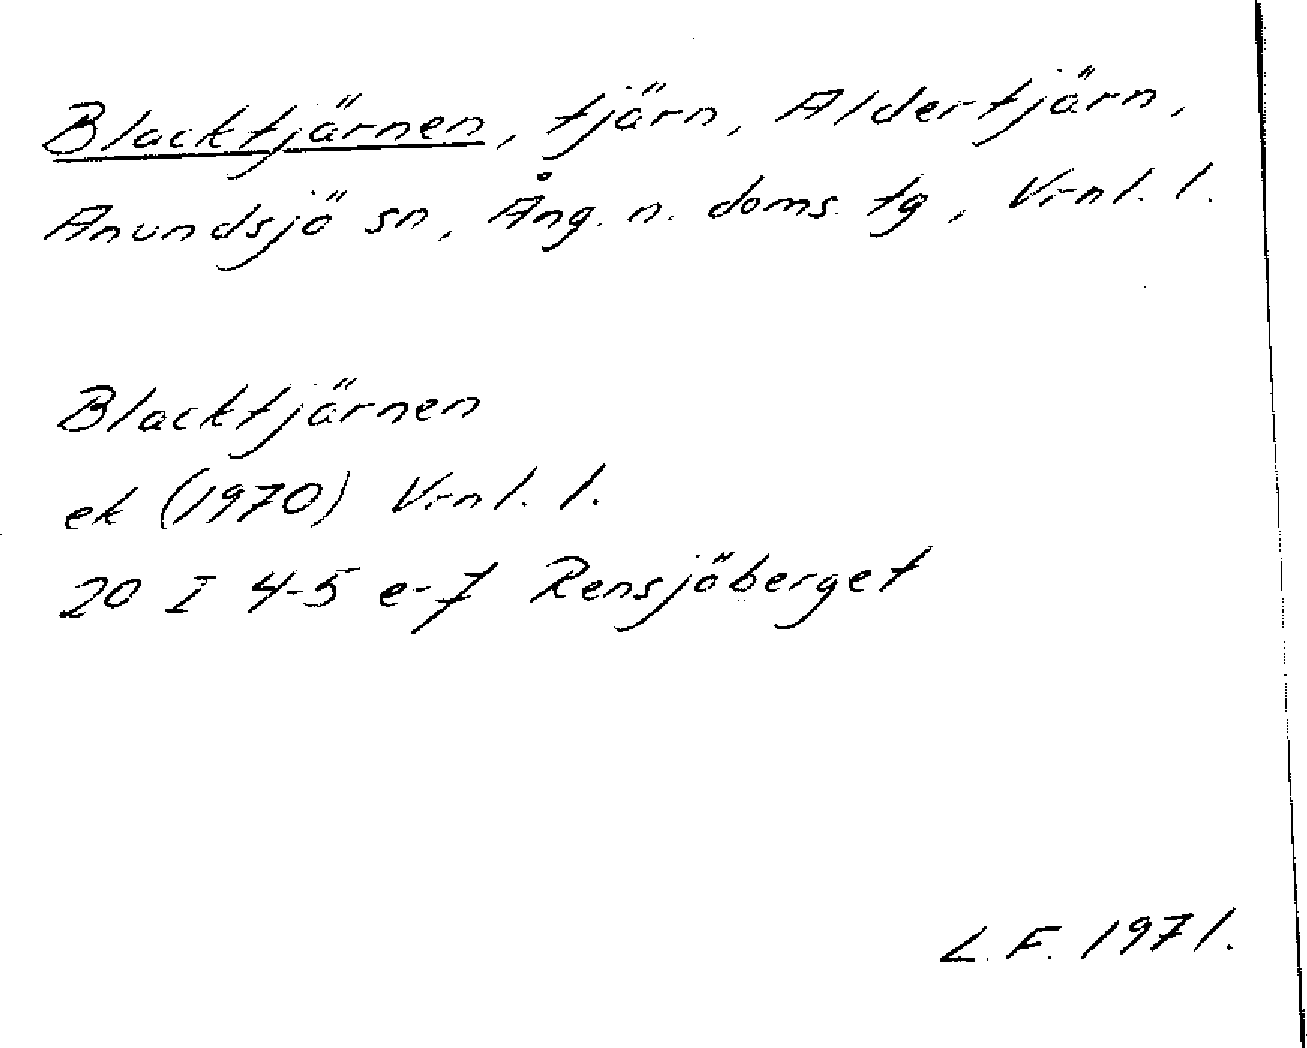 Blacktjärnen, tjärn, Aldertjärn,
Anundsjö sn, Ång. n. doms. tg, Vrnl. l.
Blacktjärnen
ek (1970) Vrnl. l.
20 I 4-5 e-f Rensjöberget
L. F. 1971.